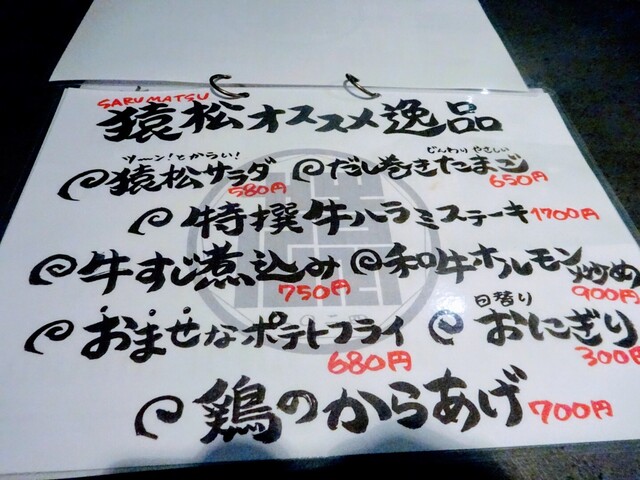 SARUMATSU
猿松オススメ逸品
ツーン!とからい! じんわりやさしい
猿松サラダ 580円 だし巻きたまご 650円
特撰牛ハラミステーキ 1700円
牛すじ煮込み 750円 和牛ホルモン炒め 900円
日替り
おませなポテトフライ 680円 おにぎり 300円
鶏のからあげ 700円